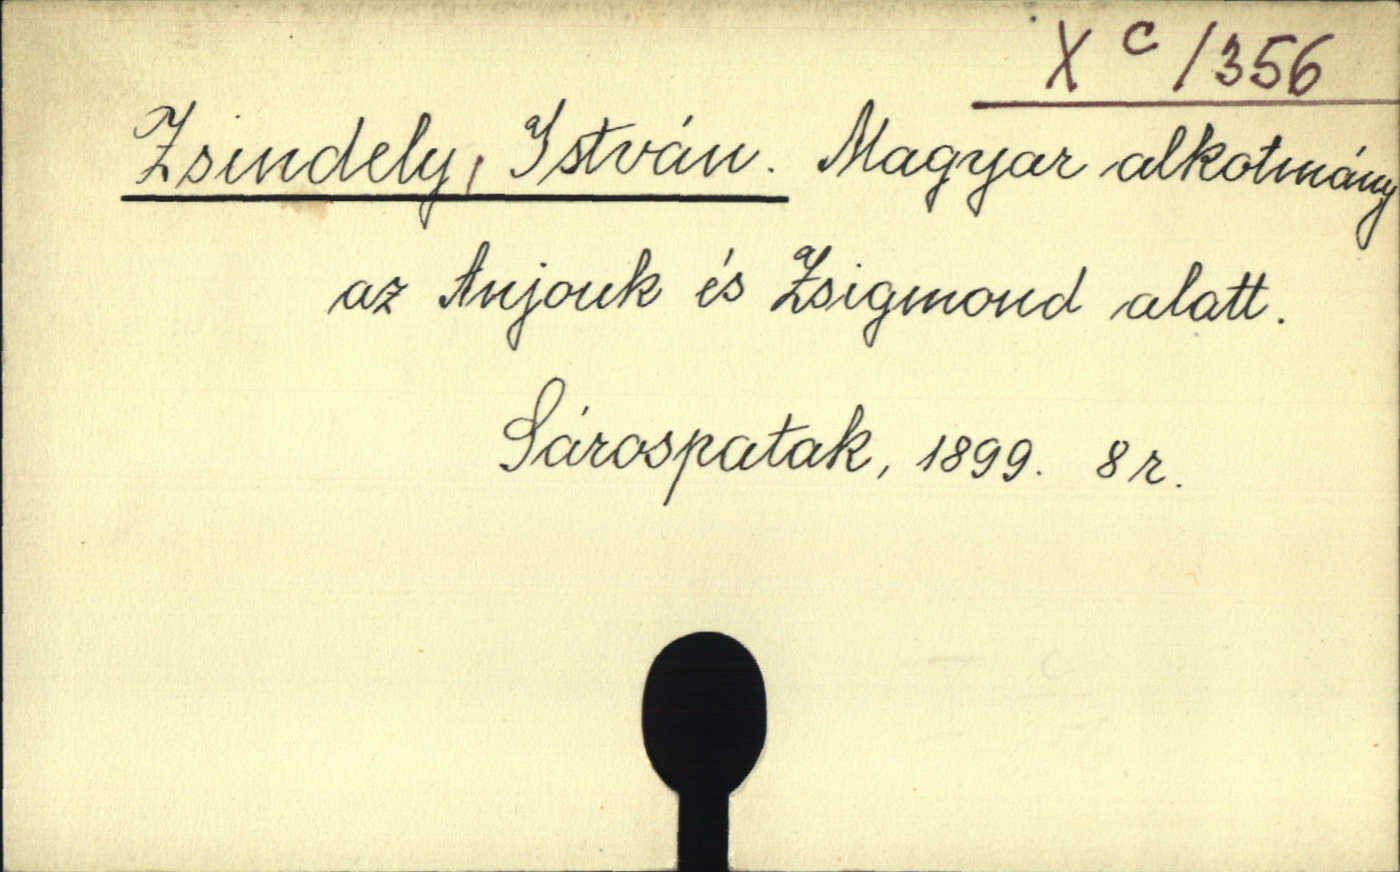 X c /356
Zsindely, István. Magyar alkotmány
az Anjouk és Zsigmond alatt.
Sárospatak, 1899. 8 r.